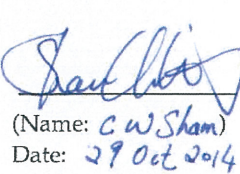 (Name: C W Sham)
Date: 29 Oct 2014